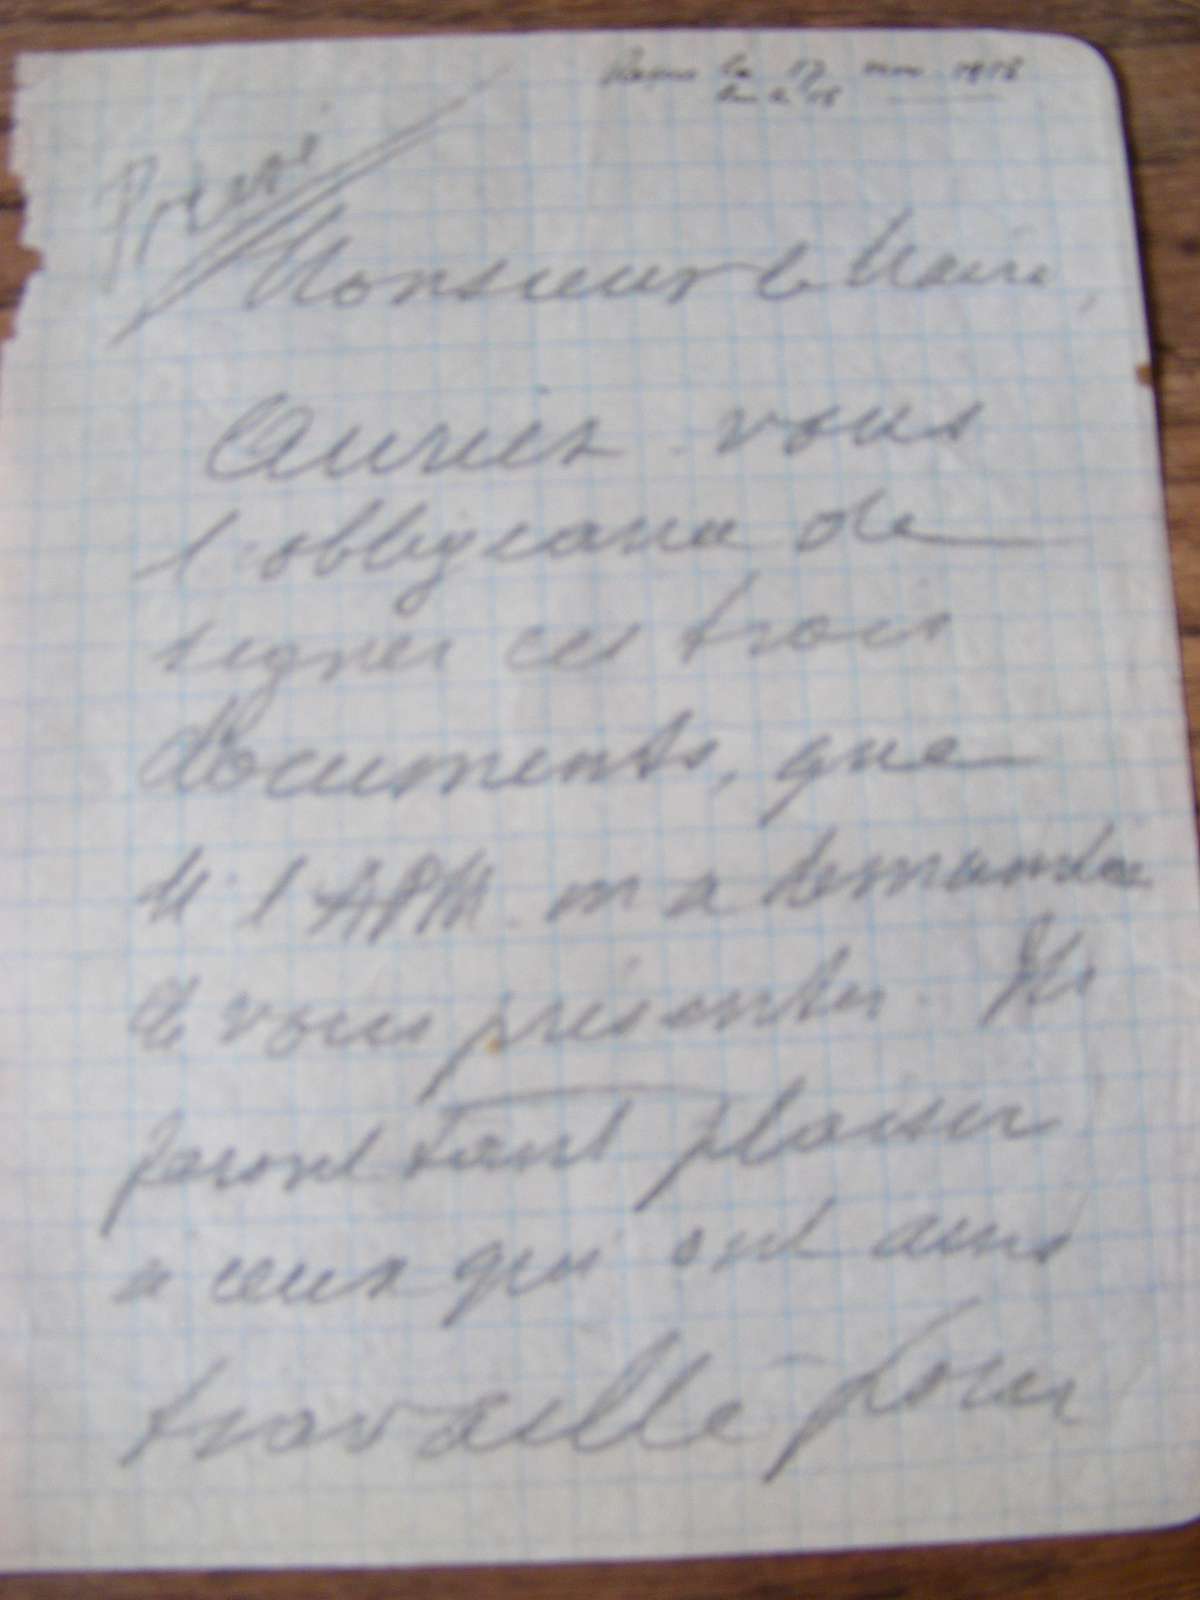 le 17 1916
Pressé
Monsieur le Maire,
Auriez-vous
l'obligeance de
signer ces trois
documents, que
M. l'APM m'a demandé
de vous présenter. Ils
feront tant plaisir
à ceux qui ont ainsi
travaillé pour